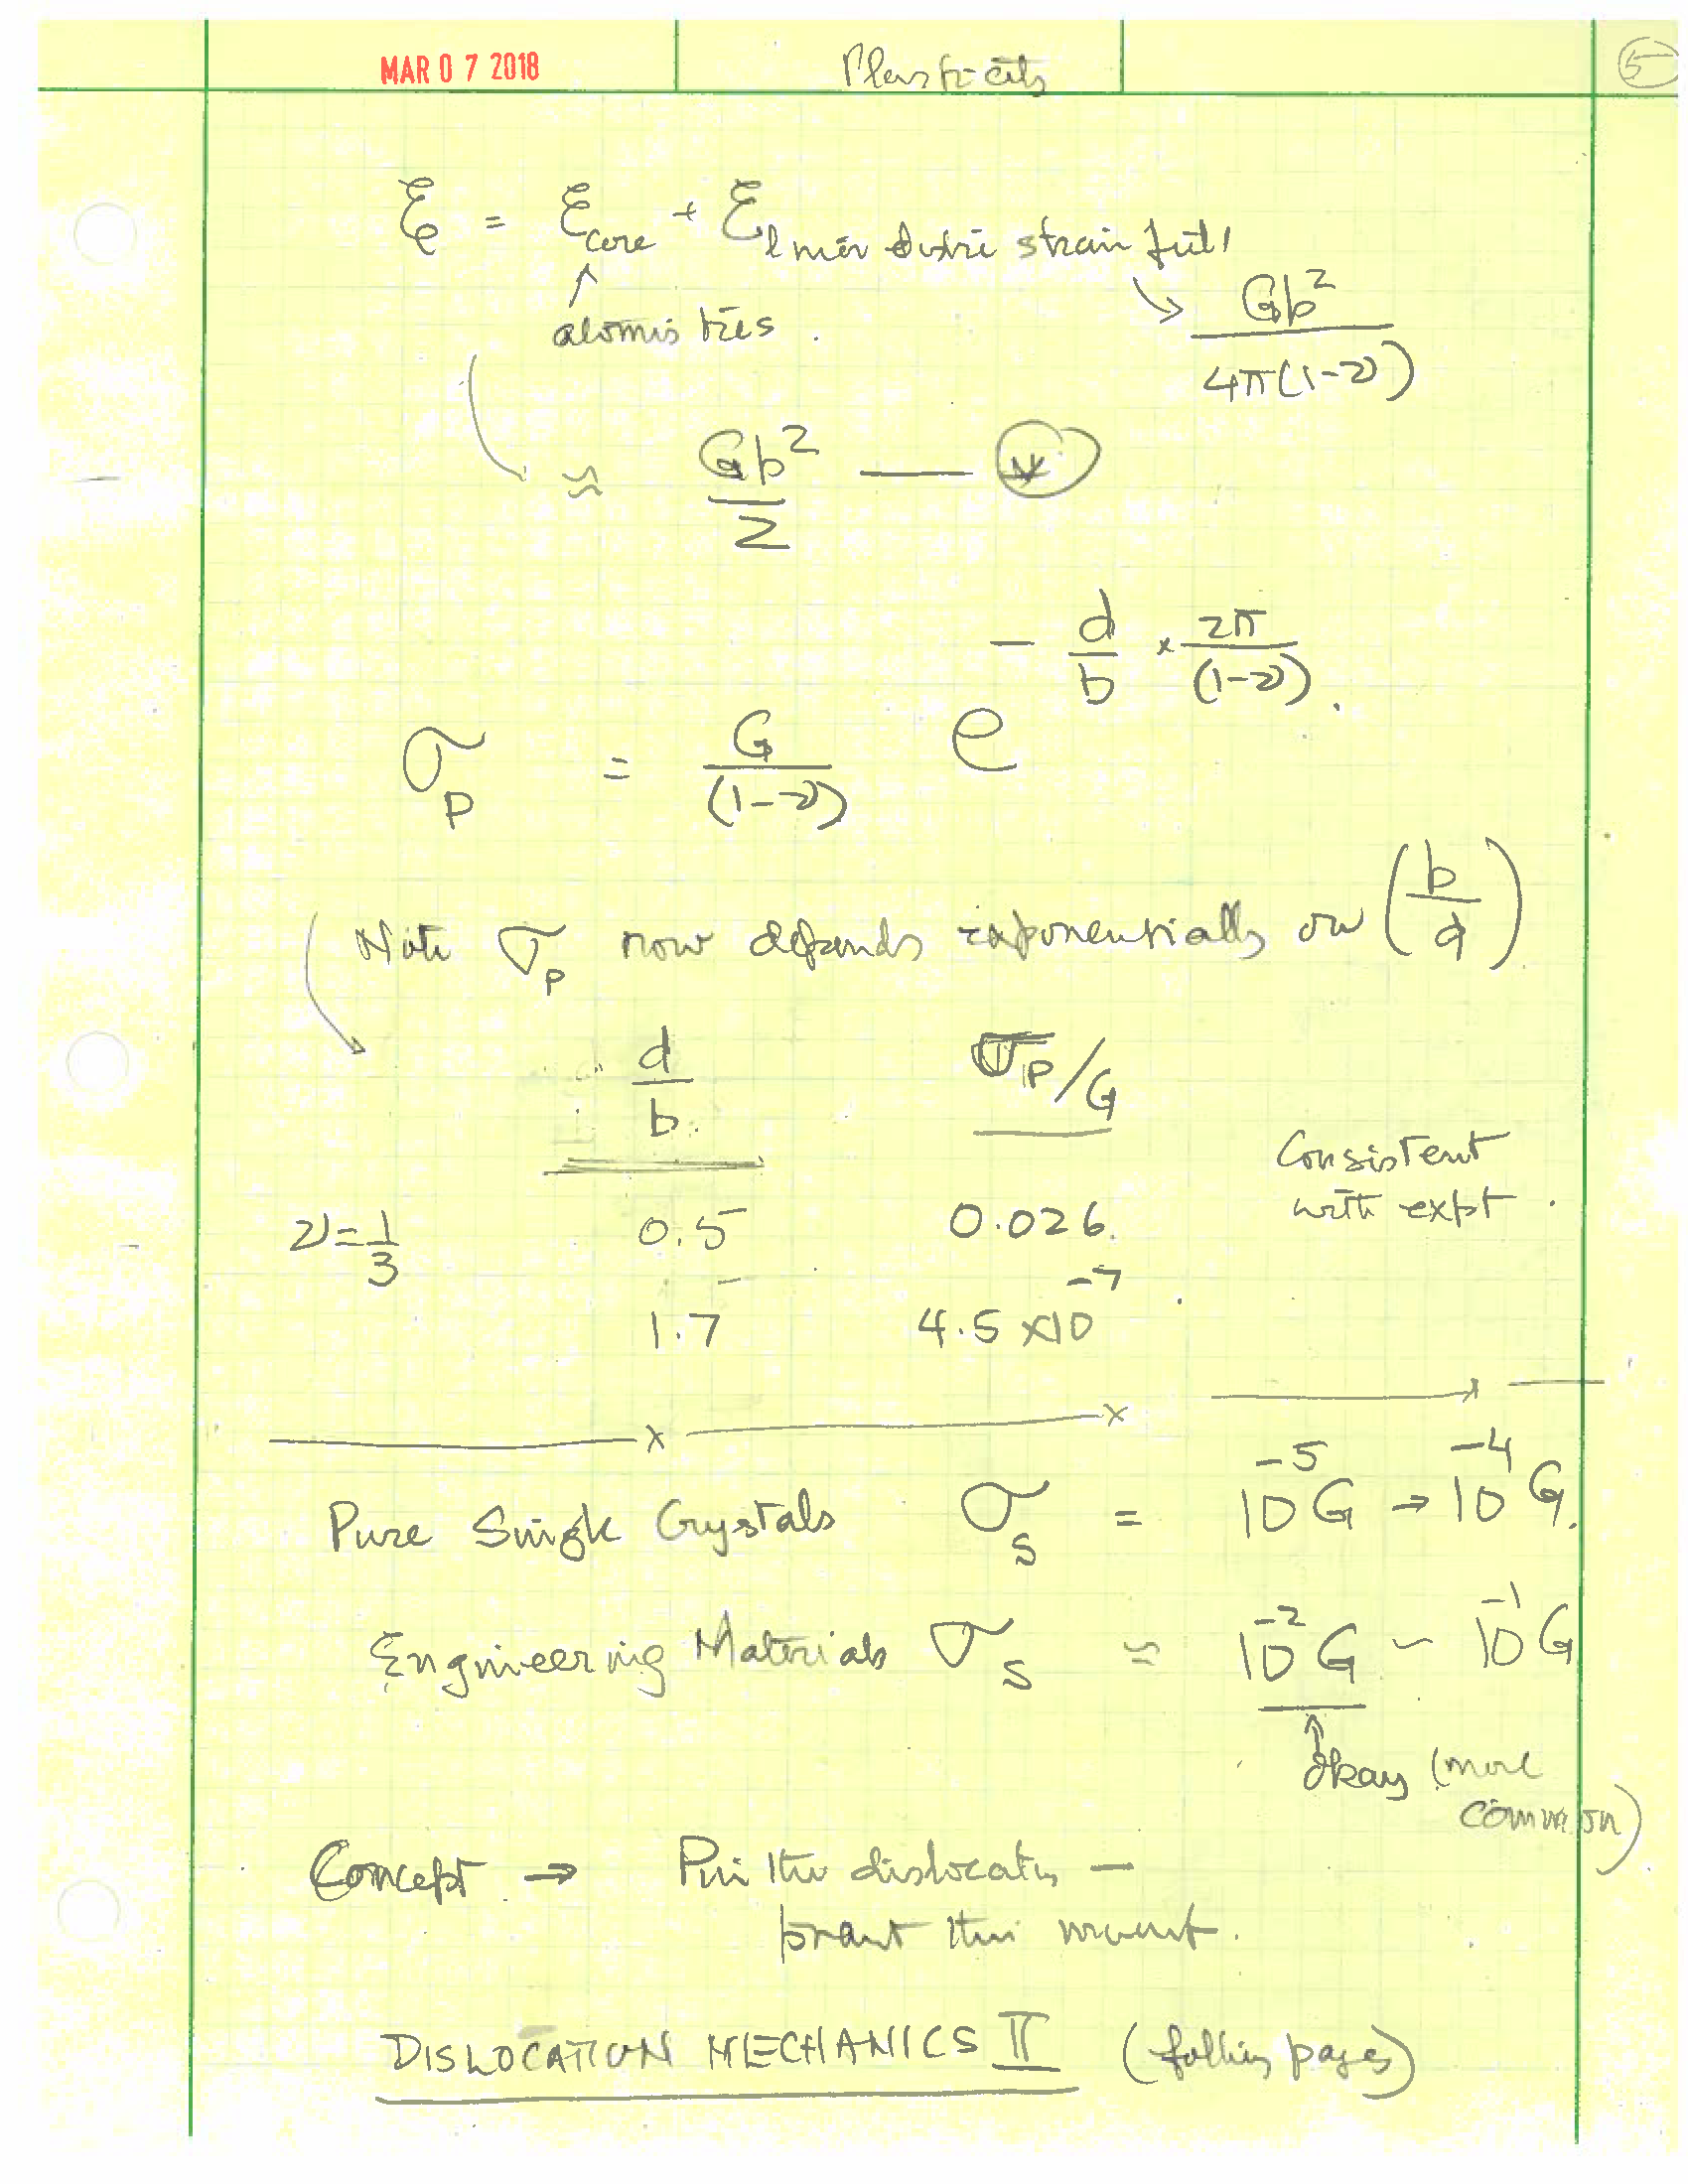 MAR 07 2018 Plasticity 5
ξ_e = ξ_core + ξ_linear elastic strain field
↑ atomistics. ↘ Gb² / 4π(1-ν)
≈ Gb²/2 — (*)
σ_p = G/(1-ν) e^(- d/b × 2π/(1-ν)).
Note σ_p now depends exponentially on (b/d)
d/b σ_p/G
Consistent
ν=1/3 0.5 0.026. with expt.
1.7 4.5 ×10^-7
Pure Single Crystals σ_s = 10^-5 G → 10^-4 G.
Engineering Materials σ_s ≈ 10^-2 G ~ 10^-1 G
↑ okay (more
common)
Concept → Pin the dislocation —
DISLOCATION MECHANICS II (following pages)